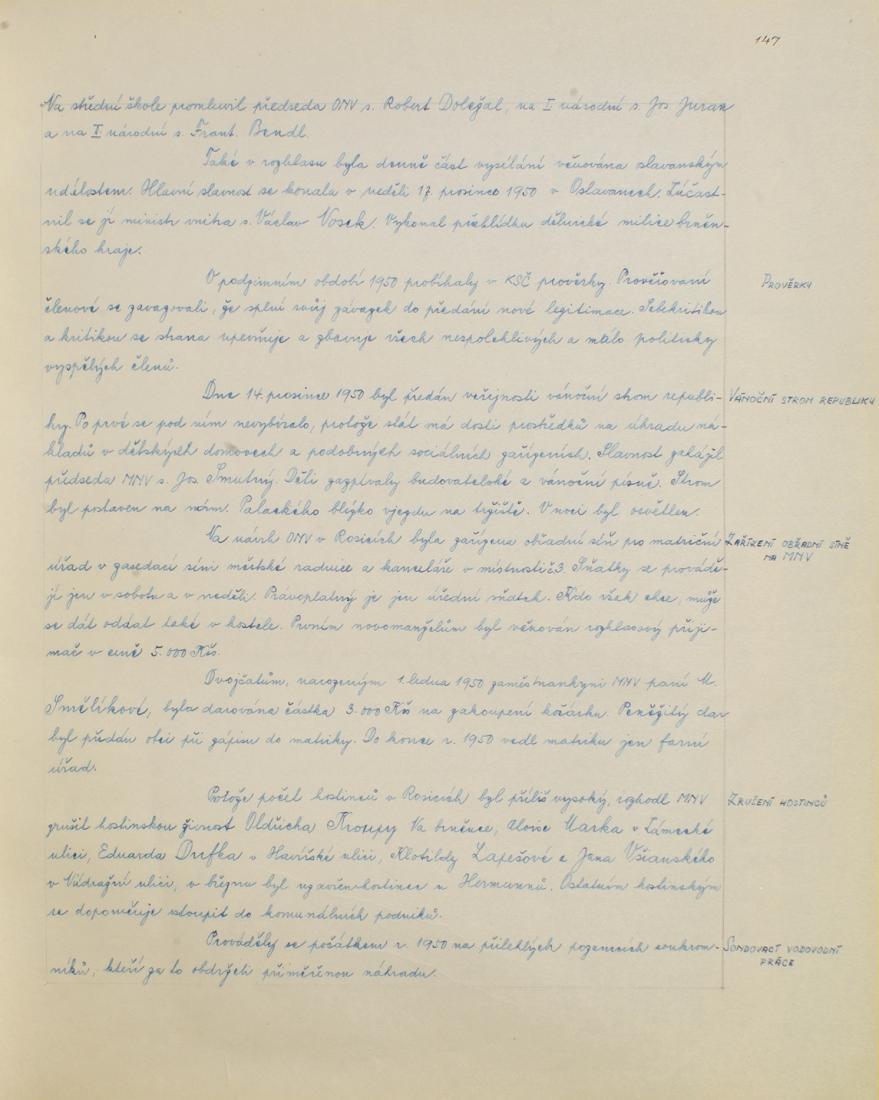 147
Na střední škole promluvil předseda ONV s. Robert Doležal, na I národní s. Jos Juran
a na II národní s. Frant. Bendl.
Také v rozhlasu byla denně část vysílání věnována oslavanským
událostem. Hlavní slavnost se konala v neděli 17. prosince 1950 v Oslavanech. Zúčast-
nil se jí ministr vnitra s. Václav Nosek. Vykonal přehlídku dělnické milice brněn-
ského kraje.
V podzimním období 1950 probíhaly v KSČ prověrky. Prověřovaní
PROVĚRKY
členové se zavazovali, že splní svůj závazek do předání nové legitimace. Sebekritikou
a kritikou se strana upevňuje a zbavuje všech nespolehlivých a málo politicky
vyspělých členů.
Dne 14. prosince 1950 byl předán veřejnosti vánoční strom republi-
VÁNOČNÍ STROM REPUBLIKY
ky. Po prvé se pod ním nevybíralo, protože stát má dosti prostředků na úhradu ná-
kladů v dětských domovech a podobných sociálních zařízeních. Slavnost zahájil
předseda MNV s. Jos Smutný. Děti zazpívaly budovatelské a vánoční písně. Strom
byl postaven na nám. Palackého blízko vjezdu na tržiště. V noci byl osvětlen.
Na návrh ONV v Rosicích byla zařízena obřadní síň pro matriční
ZAŘÍZENÍ OBŘADNÍ SÍNĚ
NA MNV
úřad v zasedací síni městské radnice a kanceláře v místnosti č 3. Sňatky se provádě-
jí jen v sobotu a v neděli. Právoplatný je jen úřední sňatek. Kdo však chce, může
se dát oddat také v kostele. Prvním novomanželům byl věnován rozhlasový přijí-
mač v ceně 5.000 Kčs.
Dvojčatům, narozeným 1. ledna 1950 zaměstnankyni MNV paní M.
Smělíkové, byla darována částka 3.000 Kčs na zakoupení kočárku. Peněžitý dar
byl předán otci při zápisu do matriky. Do konce r. 1950 vedl matriku jen farní
úřad.
Protože počet hostinců v Rosicích byl příliš vysoký, rozhodl MNV
ZRUŠENÍ HOSTINCŮ
zrušit hostinskou živnost Oldřicha Kroupy Na brněnce, Aloise Marka v Zámecké
ulici, Eduarda Drfka v Havířské ulici, Klotildy Lapešové a Jana Všianského
v Nádražní ulici, v březnu byl uzavřen hostinec u Hermannů. Ostatním hostinským
se doporučuje vstoupit do komunálních podniků.
Prováděly se počátkem r. 1950 na přilehlých pozemcích soukrom-
SONDOVACÍ VODOVODNÍ
PRÁCE
níků, kteří za to obdrželi přiměřenou náhradu.